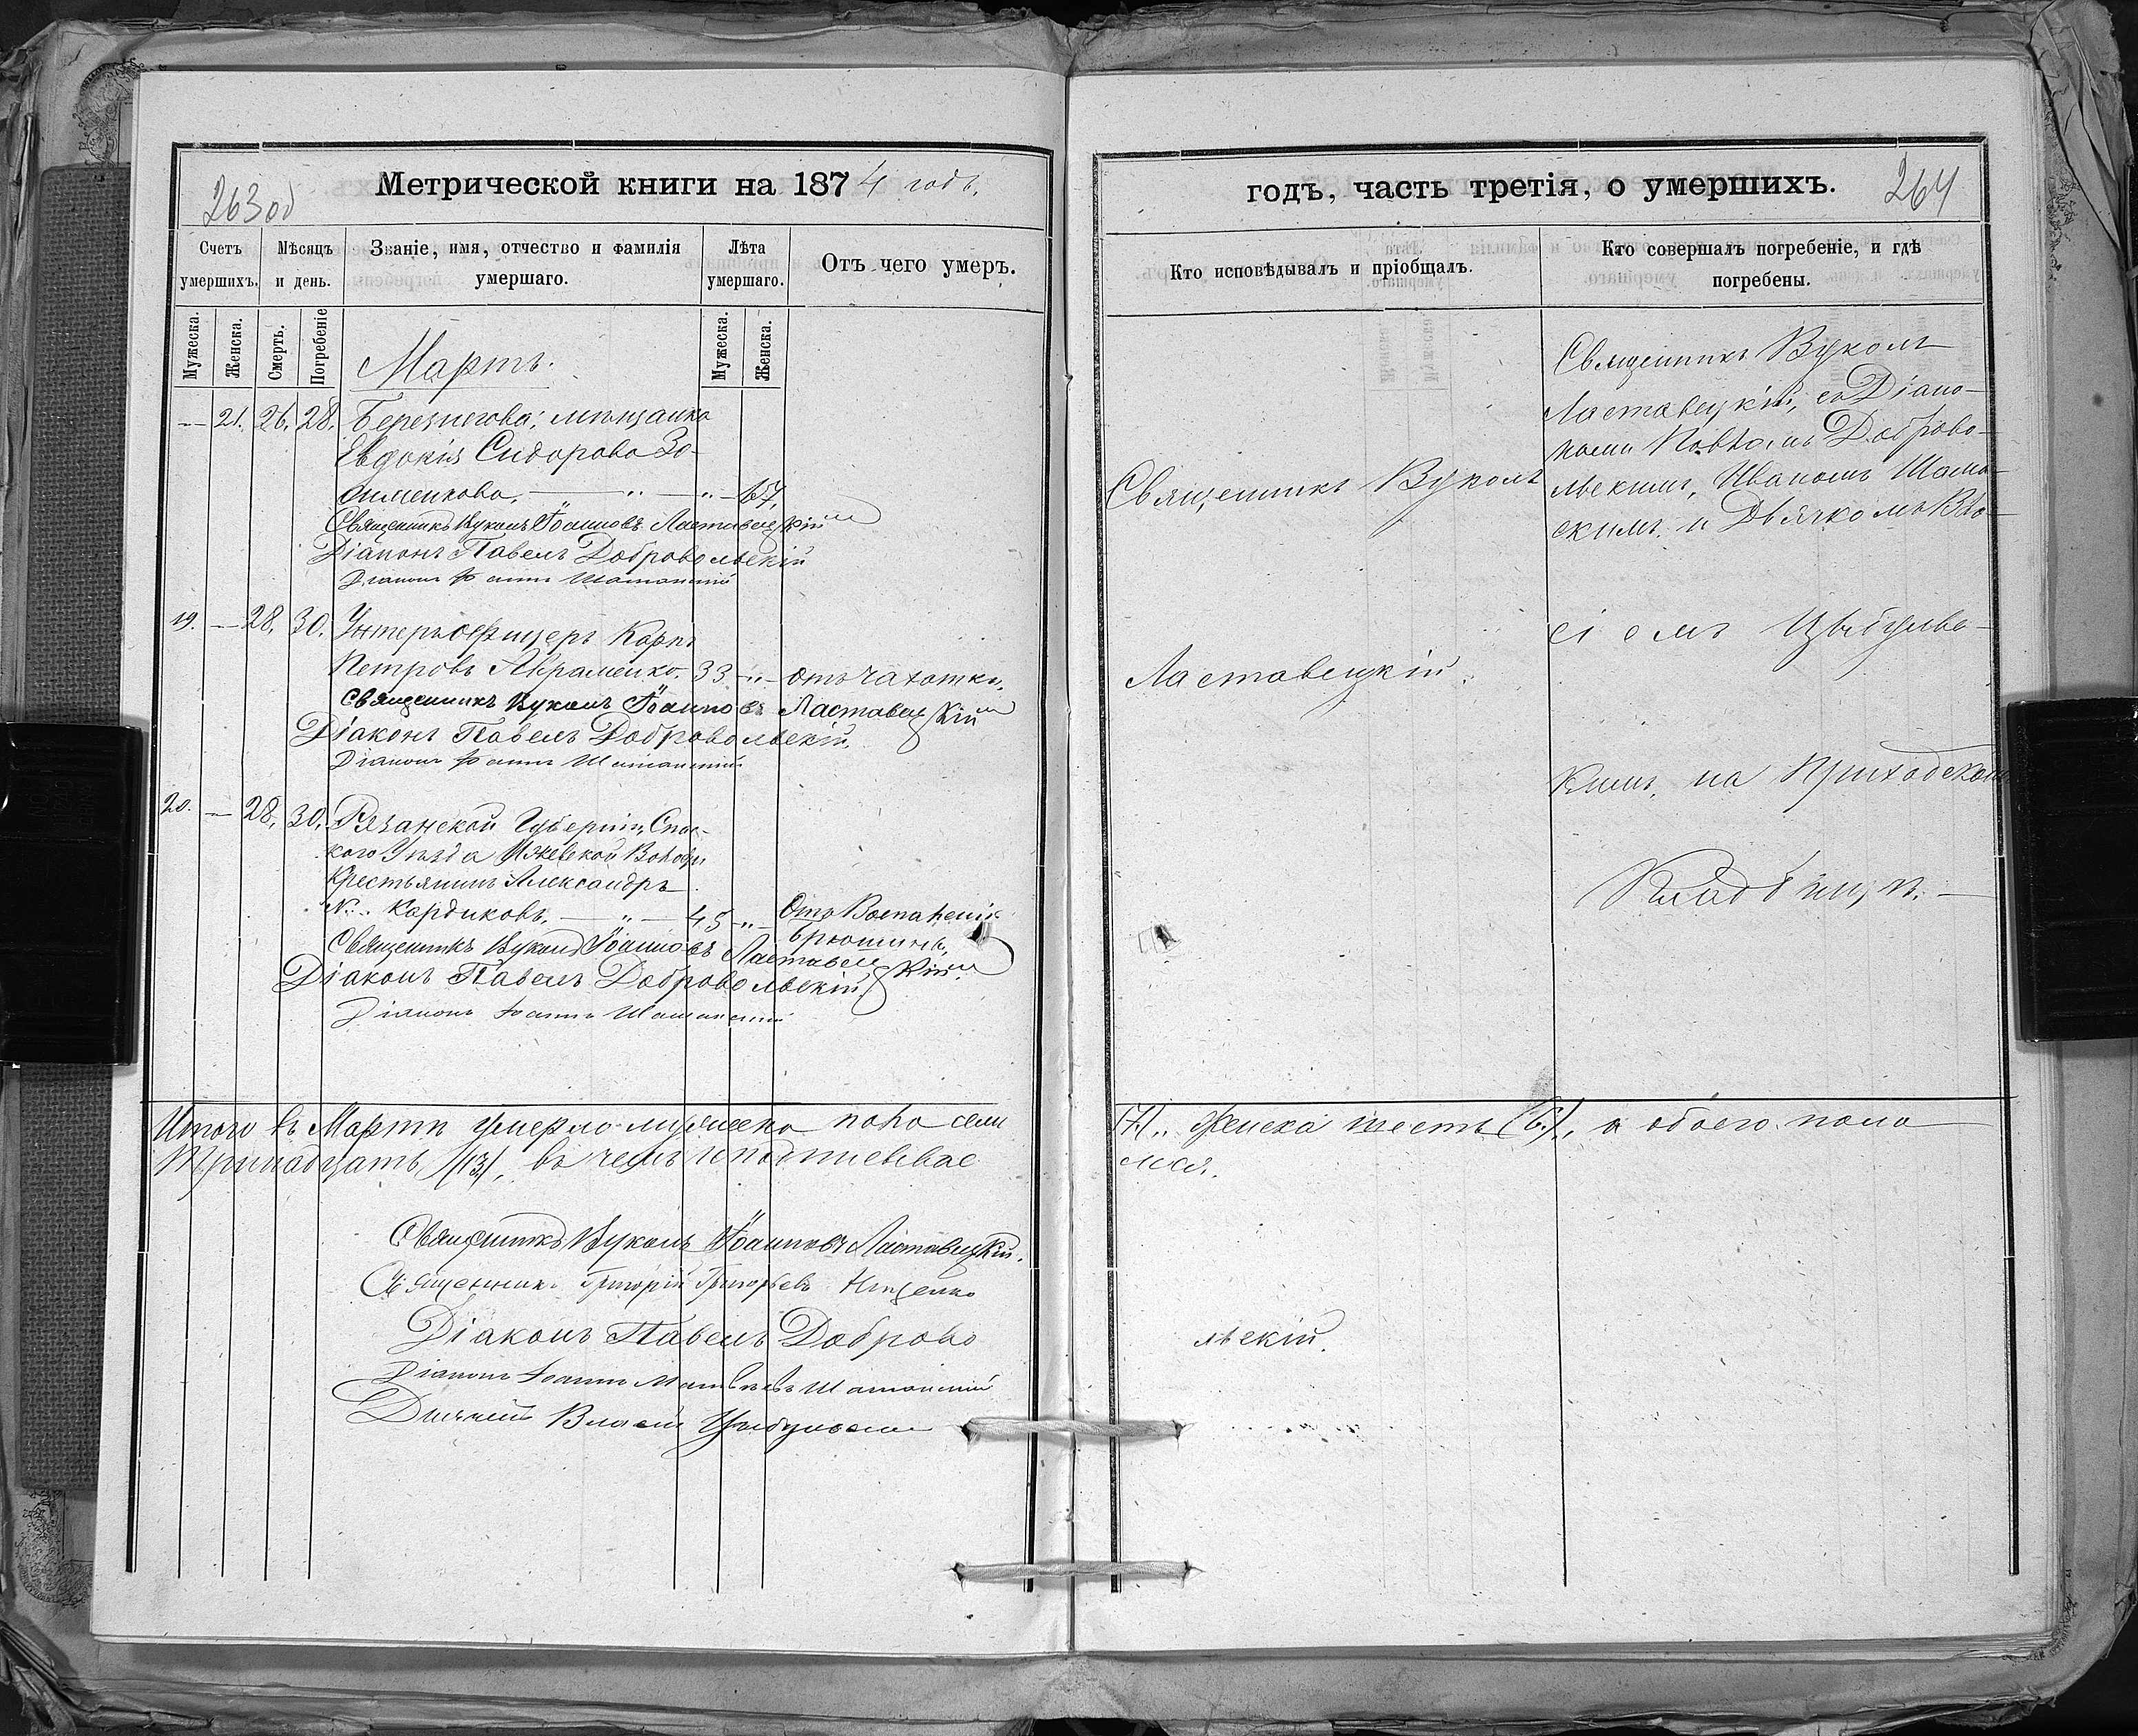 263 об
Метрической книги на 1874 годъ.
Счетъ умершихъ.
Мѣсяцъ и день.
Званіе, имя, отчество и фамилія умершаго.
Лѣта умершаго.
Отъ чего умеръ.
Мужеска.
Женска.
Смерть.
Погребеніе
Мужеска.
Женска.
Мартъ.
— 21. 26. 28. Березнегова; мѣщанка
Евдокія Сидорова Зо-
сименкова. — " — " —
Священникъ Вуколъ Іоанновъ Ластавецкій
Діаконъ Павелъ Добровольскій
Діаконъ Іоаннъ
19. — 28. 30. Унтеръ офицеръ Карпъ
Петровъ Авраменко. 33 — " — отъ чахотки.
Священникъ Вуколъ Іоанновъ Ластавецкій
Діаконъ Павелъ Добровольскій.
Діаконъ Іоаннъ
20. — 28. 30. Рязанской Губерніи, Спас-
кого Уѣзда Ижевской Волости
Крестьянинъ Александръ
Кардиковъ. — " — 45 — " — Отъ Воспаленія
брюшины.
Священникъ Вуколъ Іоанновъ Ластавецкій
Діаконъ Павелъ Добровольскій.
Діаконъ Іоаннъ
Итого въ Мартѣ умерло мужеска пола семь
Тринадцать (13), въ чемъ и подписывае
Священникъ Вуколъ Іоанновъ Ластавецкій.
Священникъ Григорій Григорьевъ
Діаконъ Павелъ Доброво
Діаконъ Іоаннъ Матвѣевъ
Дьячекъ Власій
264
годъ, часть третія, о умершихъ.
Кто исповѣдывалъ и пріобщалъ.
Кто совершалъ погребеніе, и гдѣ погребены.
Священникъ Вуколъ
Ластавецкій.
Священникъ Вуколъ
Ластавецкій, съ Діако-
нами Павломъ Доброво-
льскимъ, Иваномъ Шама-
скимъ и Дьячкомъ Вла-
сіемъ Цыбулев-
кимъ, на Приходском
Кладбищѣ. —
(7).. Женска шесть (6)., а обоего пола
мся.
льскій.